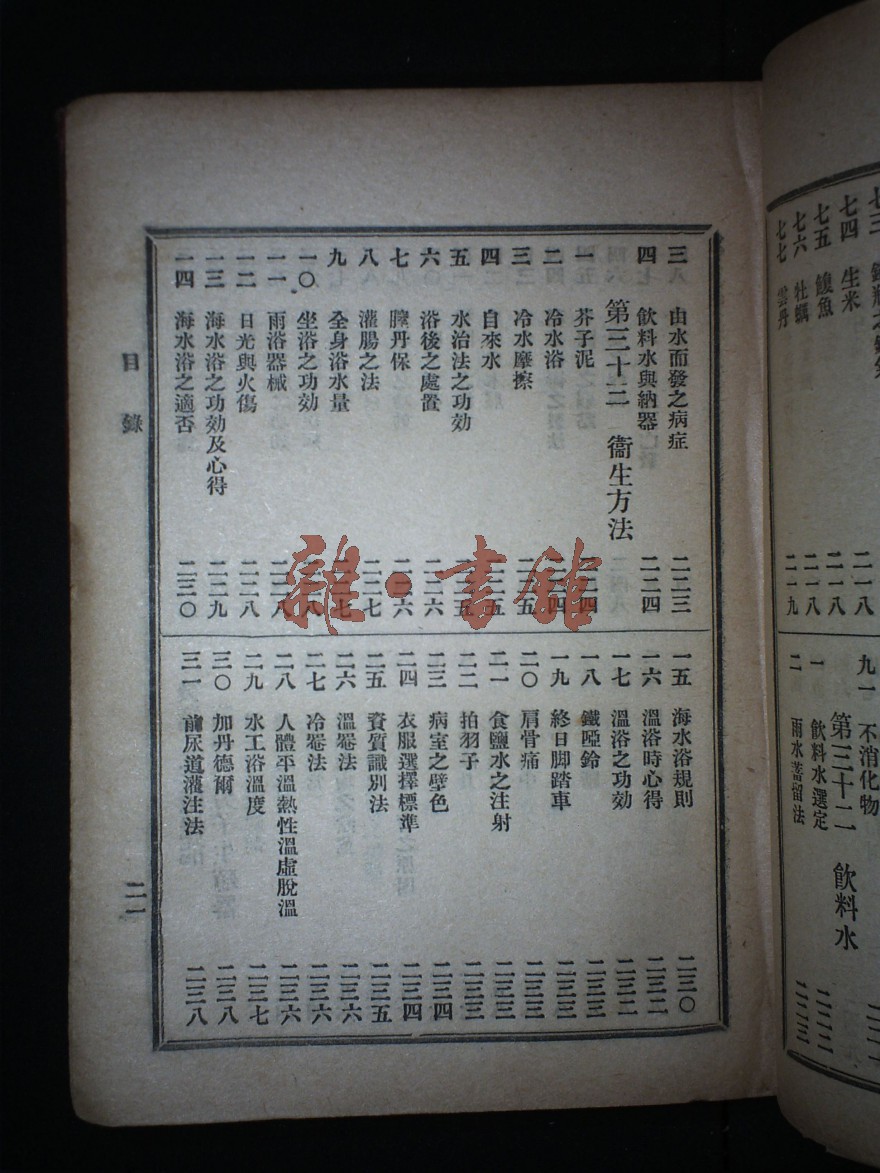 七四 生米 二一八
七五 鰻魚 二一八
七六 牡蠣 二一八
七七 雲丹 二一九
九一 不消化物
第三十二 飲料水
一 飲料水選定 二二二
二 雨水蓄留法 二二三
三八 由水而發之病症 二二三
四七 飲料水與納器 二二四
第三十三 衞生方法
一 芥子泥 二二四
二 冷水浴 二二四
三 冷水摩擦 二二五
四 自來水 二二五
五 水治法之功効 二二五
六 浴後之處置 二二六
七 膣丹保 二二六
八 灌腸之法 二二七
九 全身浴水量 二二七
一〇 坐浴之功効 二二八
一一 雨浴器械 二二八
一二 日光與火傷 二二八
一三 海水浴之功効及心得 二二九
一四 海水浴之適否 二三〇
一五 海水浴規則 二三〇
一六 溫浴時心得 二三二
一七 溫浴之功効 二三二
一八 鐵啞鈴 二三三
一九 終日脚踏車 二三三
二〇 肩骨痛 二三三
二一 食鹽水之注射 二三三
二二 拍羽子 二三三
二三 病室之壁色 二三四
二四 衣服選擇標準 二三四
二五 資質識別法 二三五
二六 溫罨法 二三六
二七 冷罨法 二三六
二八 人體平溫熱性溫虛脫溫 二三六
二九 水工浴溫度 二三七
三〇 加丹德爾 二三八
三一 前尿道灌注法 二三八
目錄
二一
雜·書館